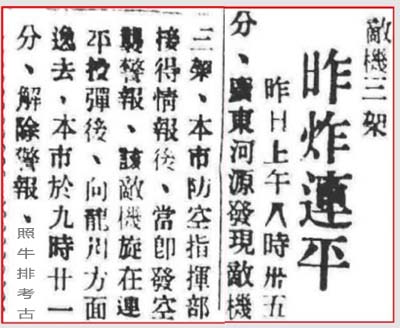 敵機三架
昨炸連平
昨日上午八時卅五
分、廣東河源發現敵機
三架、本市防空指揮部
接得情報後、當卽發空
襲警報、該敵機旋在連
平投彈後、向龍川方面
逸去、本市於九時廿一
分、解除警報、
照牛排考古